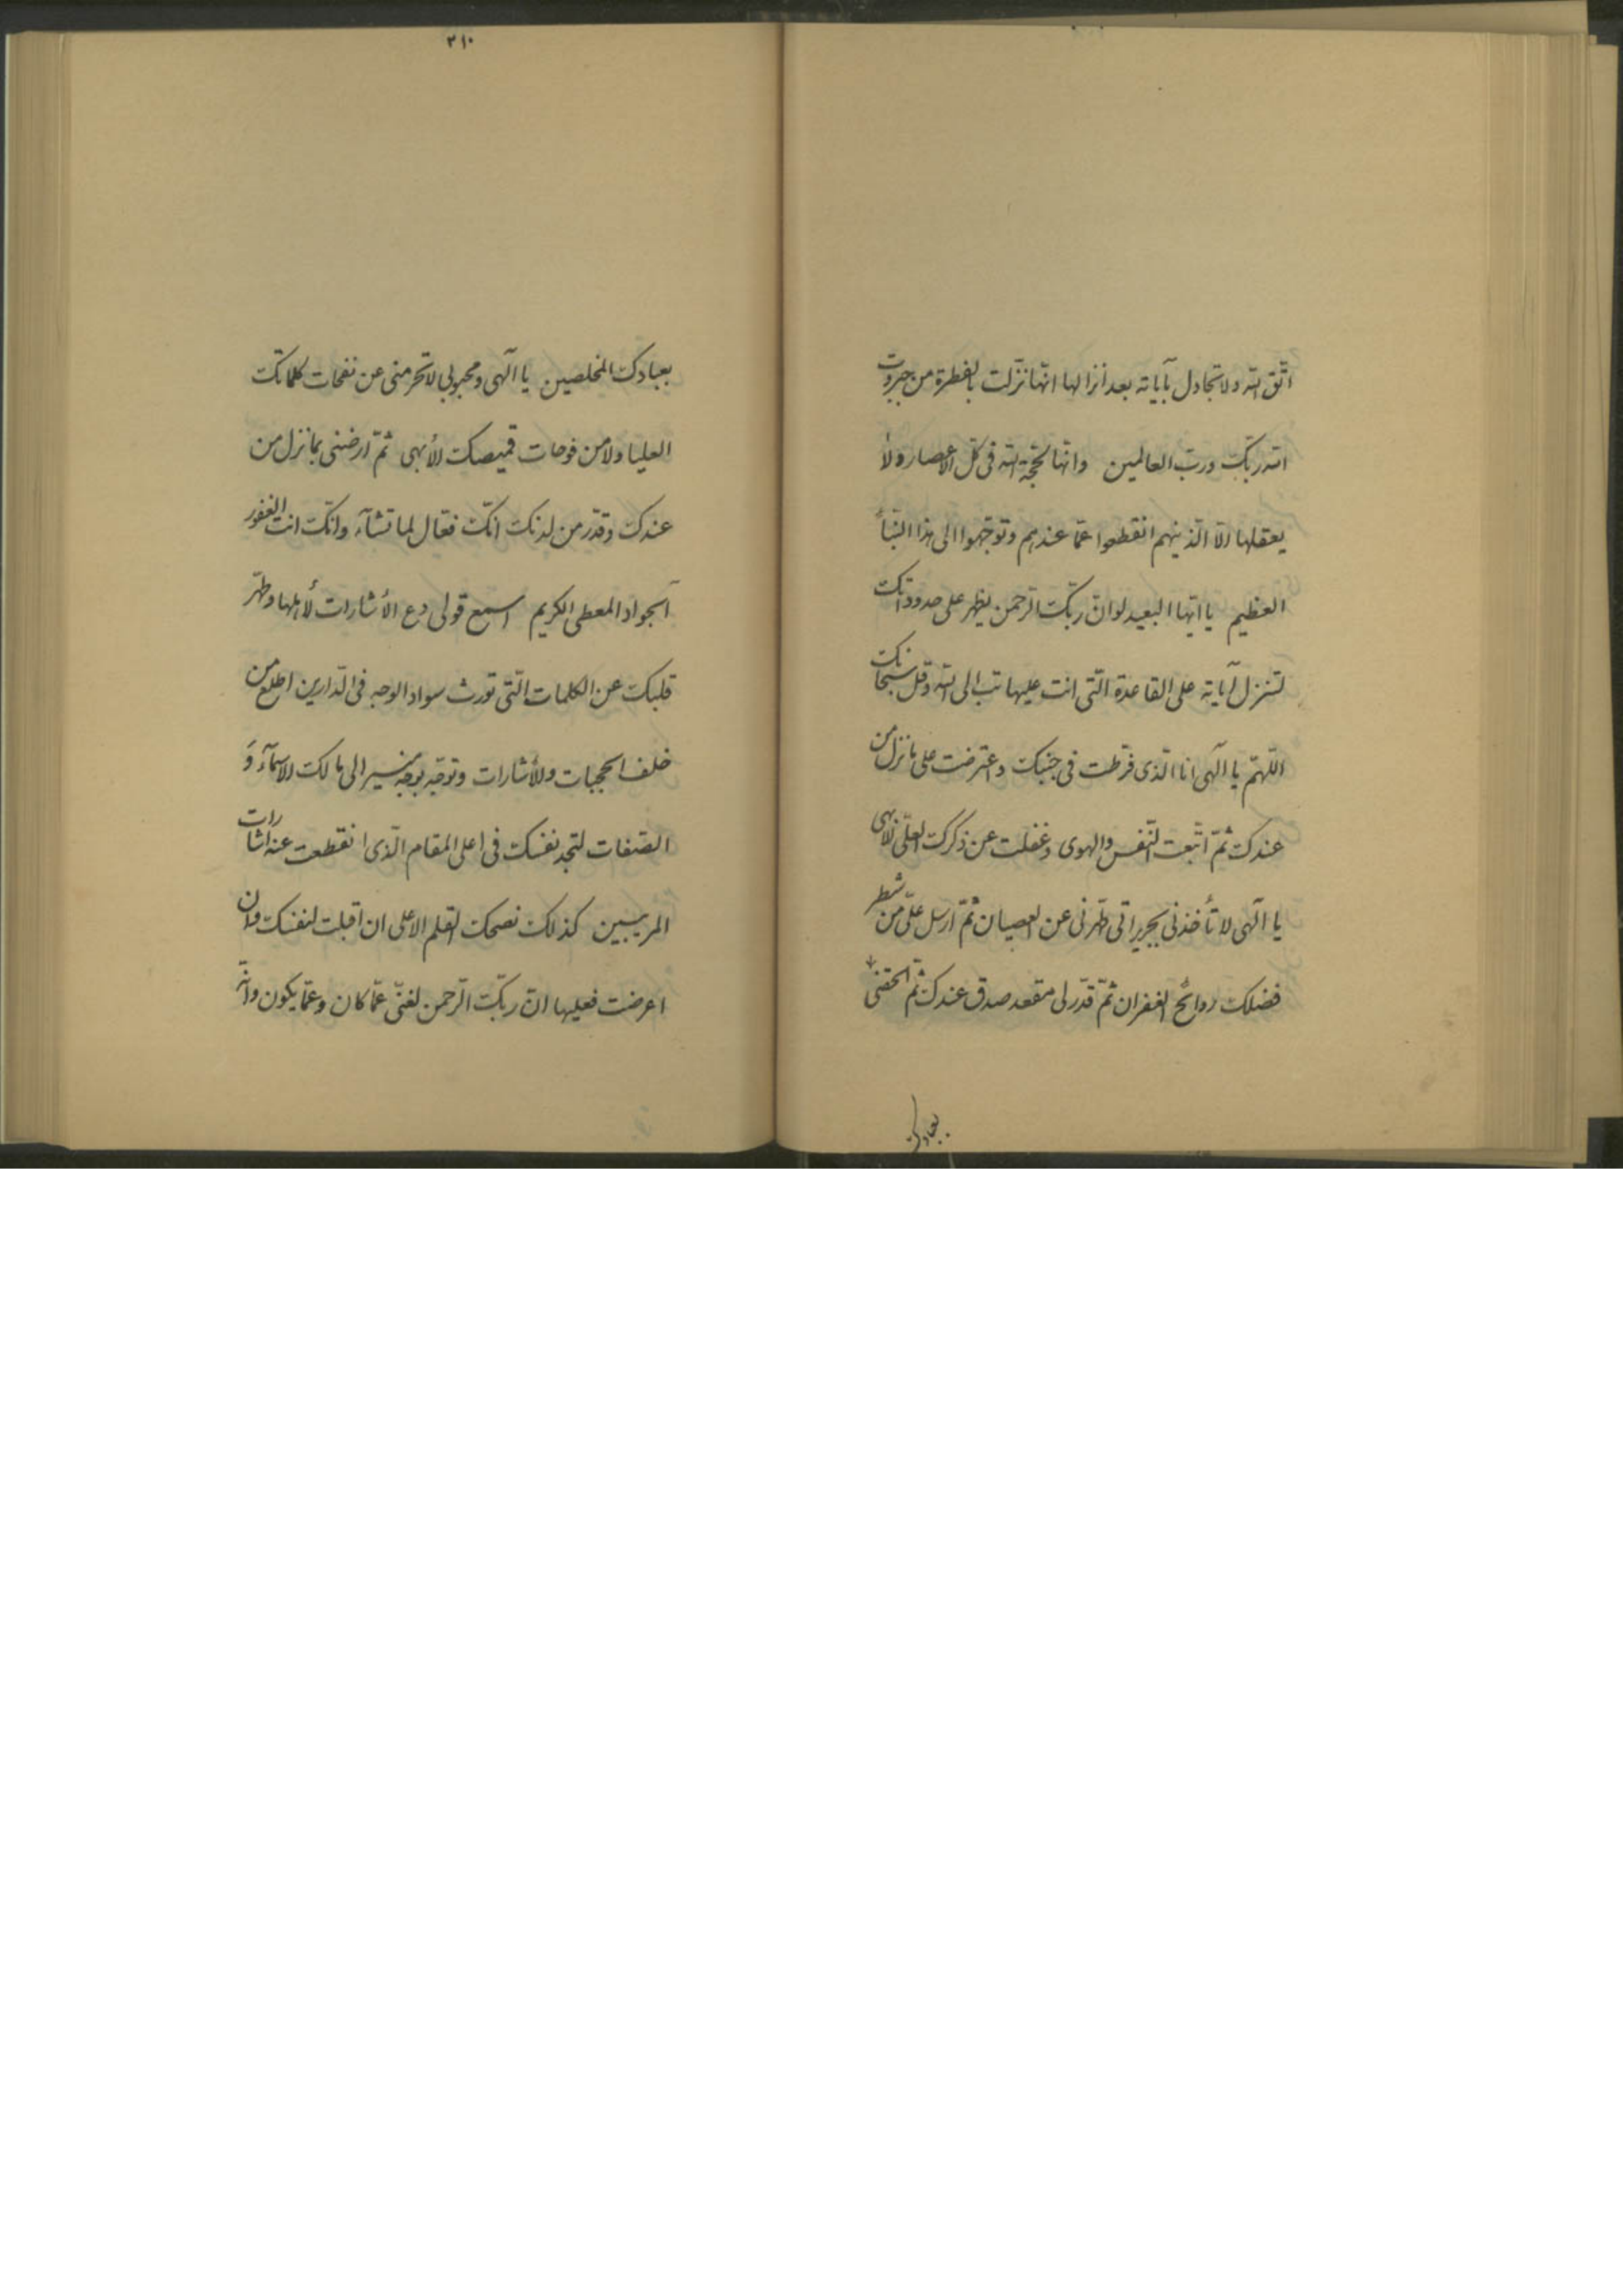 اتّق الله و لا تجادل بآياته بعد انزالها انّها نزّلت بالفطرة من جبروت
الله ربّك و ربّ العالمين و انّها لحجّة الله فى كلّ الأعصار و لا
يعقلها الّا الّذينهم انقطعوا عمّا عندهم و توجّهوا الى هذا النّبأ
العظيم يا ايّها البعيد لو انّ ربّك الرّحمن يظهر على حدوداتك
لتنزل آياته على القاعدة الّتى انت عليها تب الى الله و قل سبحانك
اللّهمّ يا الهى انا الّذى فرّطت فى جنبك و اعترضت على ما نزل من
عندك ثمّ اتّبعت النّفس و الهوى و غفلت عن ذكرك العلىّ الأبهى
يا الهى لا تأخذنى بجريراتى طهّرنى عن العصيان ثمّ ارسل علىّ من شطر
فضلك روائح الغفران ثمّ قدّر لى مقعد صدق عندك ثمّ الحقنى
بعبادك
٢١٠
بعبادك المخلصين يا الهى و محبوبى لا تحرمنى عن نفحات كلماتك
العليا و لا من فوحات قميصك الأبهى ثمّ ارضنى بما نزل من
عندك و قدّر من لدنك انّك فعّال لما تشآء و انّك انت الغفور
الجواد المعطى الكريم اسمع قولى دع الأشارات لأهلها و طهّر
قلبك عن الكلمات الّتى تورث سواد الوجه فى الدّارين اطلع من
خلف الحجبات و الأشارات و توجّه بوجه منير الى مالك الاسمآء و
الصّفات لتجد نفسك فى اعلى المقام الّذى انقطعت عنه اشارات
المريبين كذلك نصحك القلم الاعلى ان اقبلت لنفسك و ان
اعرضت فعليها انّ ربّك الرّحمن لغنىّ عمّا كان و عمّا يكون و انّه